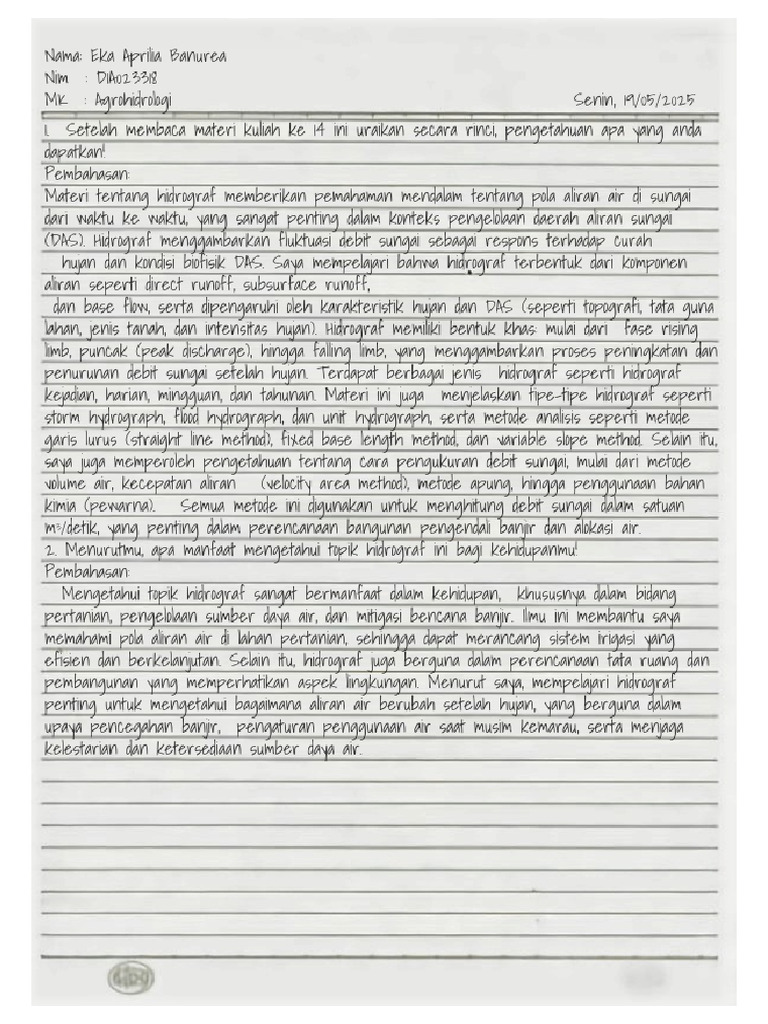 Nama: Eka Aprilia Banurea
Nim : D1A023318
MK : Agrohidrologi Senin, 19/05/2025
1. Setelah membaca materi kuliah ke 14 ini uraikan secara rinci, pengetahuan apa yang anda
dapatkan!
Pembahasan:
Materi tentang hidrograf memberikan pemahaman mendalam tentang pola aliran air di sungai
dari waktu ke waktu, yang sangat penting dalam konteks pengelolaan daerah aliran sungai
(DAS). Hidrograf menggambarkan fluktuasi debit sungai sebagai respons terhadap curah
hujan dan kondisi biofisik DAS. Saya mempelajari bahwa hidrograf terbentuk dari komponen
aliran seperti direct runoff, subsurface runoff,
dan base flow, serta dipengaruhi oleh karakteristik hujan dan DAS (seperti topografi, tata guna
lahan, jenis tanah, dan intensitas hujan). Hidrograf memiliki bentuk khas: mulai dari fase rising
limb, puncak (peak discharge), hingga falling limb, yang menggambarkan proses peningkatan dan
penurunan debit sungai setelah hujan. Terdapat berbagai jenis hidrograf seperti hidrograf
kejadian, harian, mingguan, dan tahunan. Materi ini juga menjelaskan tipe-tipe hidrograf seperti
storm hydrograph, flood hydrograph, dan unit hydrograph, serta metode analisis seperti metode
garis lurus (straight line method), fixed base length method, dan variable slope method. Selain itu,
saya juga memperoleh pengetahuan tentang cara pengukuran debit sungai, mulai dari metode
volume air, kecepatan aliran (velocity area method), metode apung, hingga penggunaan bahan
kimia (pewarna). Semua metode ini digunakan untuk menghitung debit sungai dalam satuan
m³/detik, yang penting dalam perencanaan bangunan pengendali banjir dan alokasi air.
2. Menurutmu, apa manfaat mengetahui topik hidrograf ini bagi kehidupanmu!
Pembahasan:
Mengetahui topik hidrograf sangat bermanfaat dalam kehidupan, khususnya dalam bidang
pertanian, pengelolaan sumber daya air, dan mitigasi bencana banjir. Ilmu ini membantu saya
memahami pola aliran air di lahan pertanian, sehingga dapat merancang sistem irigasi yang
efisien dan berkelanjutan. Selain itu, hidrograf juga berguna dalam perencanaan tata ruang dan
pembangunan yang memperhatikan aspek lingkungan. Menurut saya, mempelajari hidrograf
penting untuk mengetahui bagaimana aliran air berubah setelah hujan, yang berguna dalam
upaya pencegahan banjir, pengaturan penggunaan air saat musim kemarau, serta menjaga
kelestarian dan ketersediaan sumber daya air.